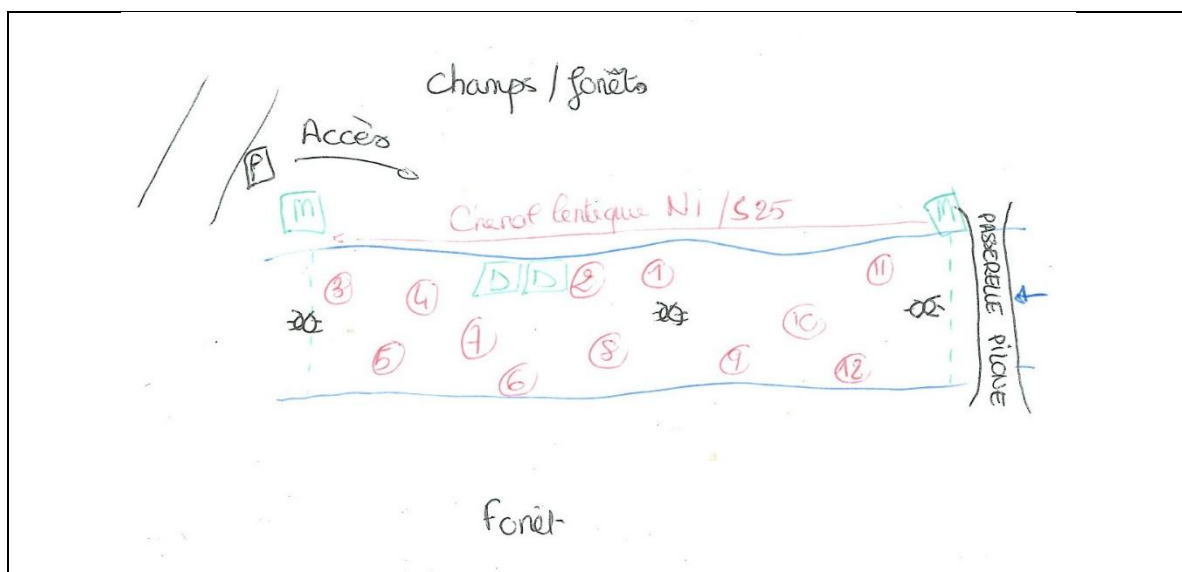 Champs / forêts
Accès
P
M
Chenal lentique N1 / S25
M
PASSERELLE PILONE
D D 2 1 11
3 4
10
7 8
5 6 9 12
Forêt